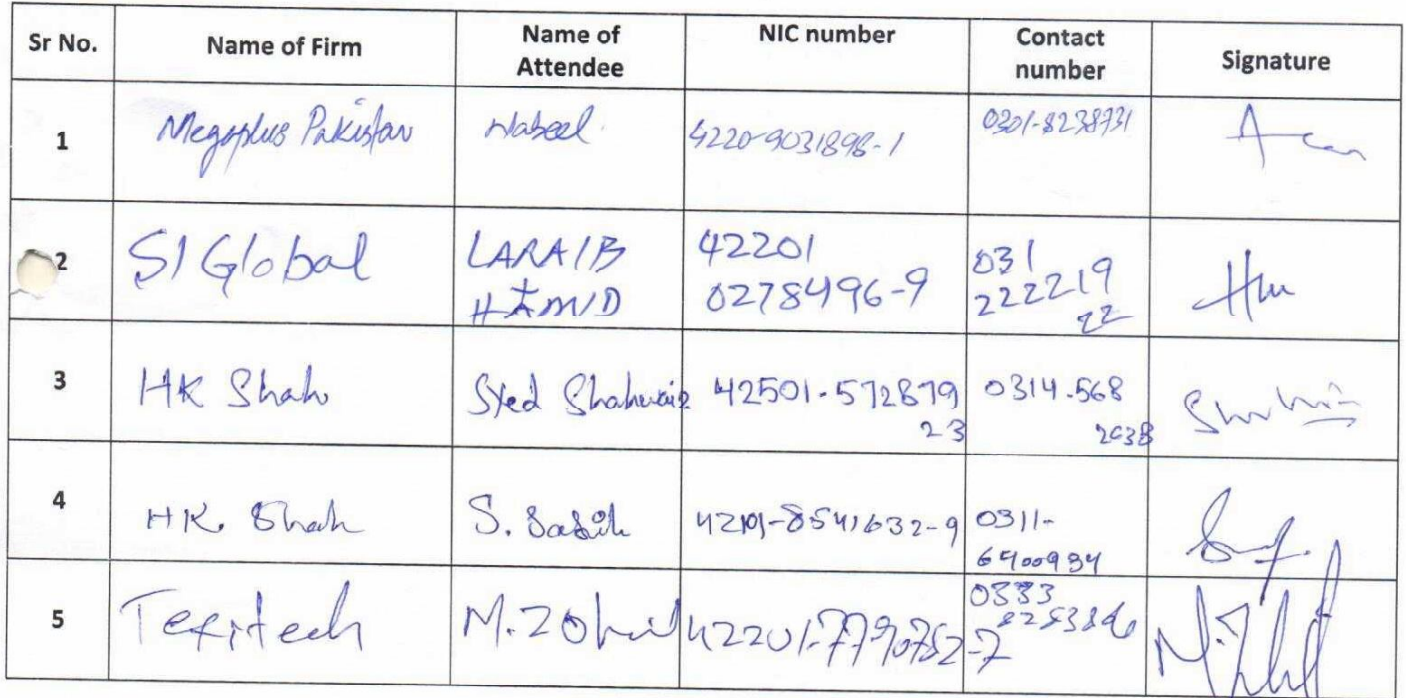 Sr No. Name of Firm Name of Attendee NIC number Contact number Signature
1 Megaplus Pakistan Nabeel 4220-9031898-1 0301-8238731
2 SI Global LARAIB HAMID 42201 0278496-9 031 222219 22
3 HK Shah Syed Shahwaiz 42501-572879 23 0314-568 2638
4 HK. Shah S. 42101-8541632-9 0311- 6400994
5 M. Zohaib 42201-7790782-7 0333